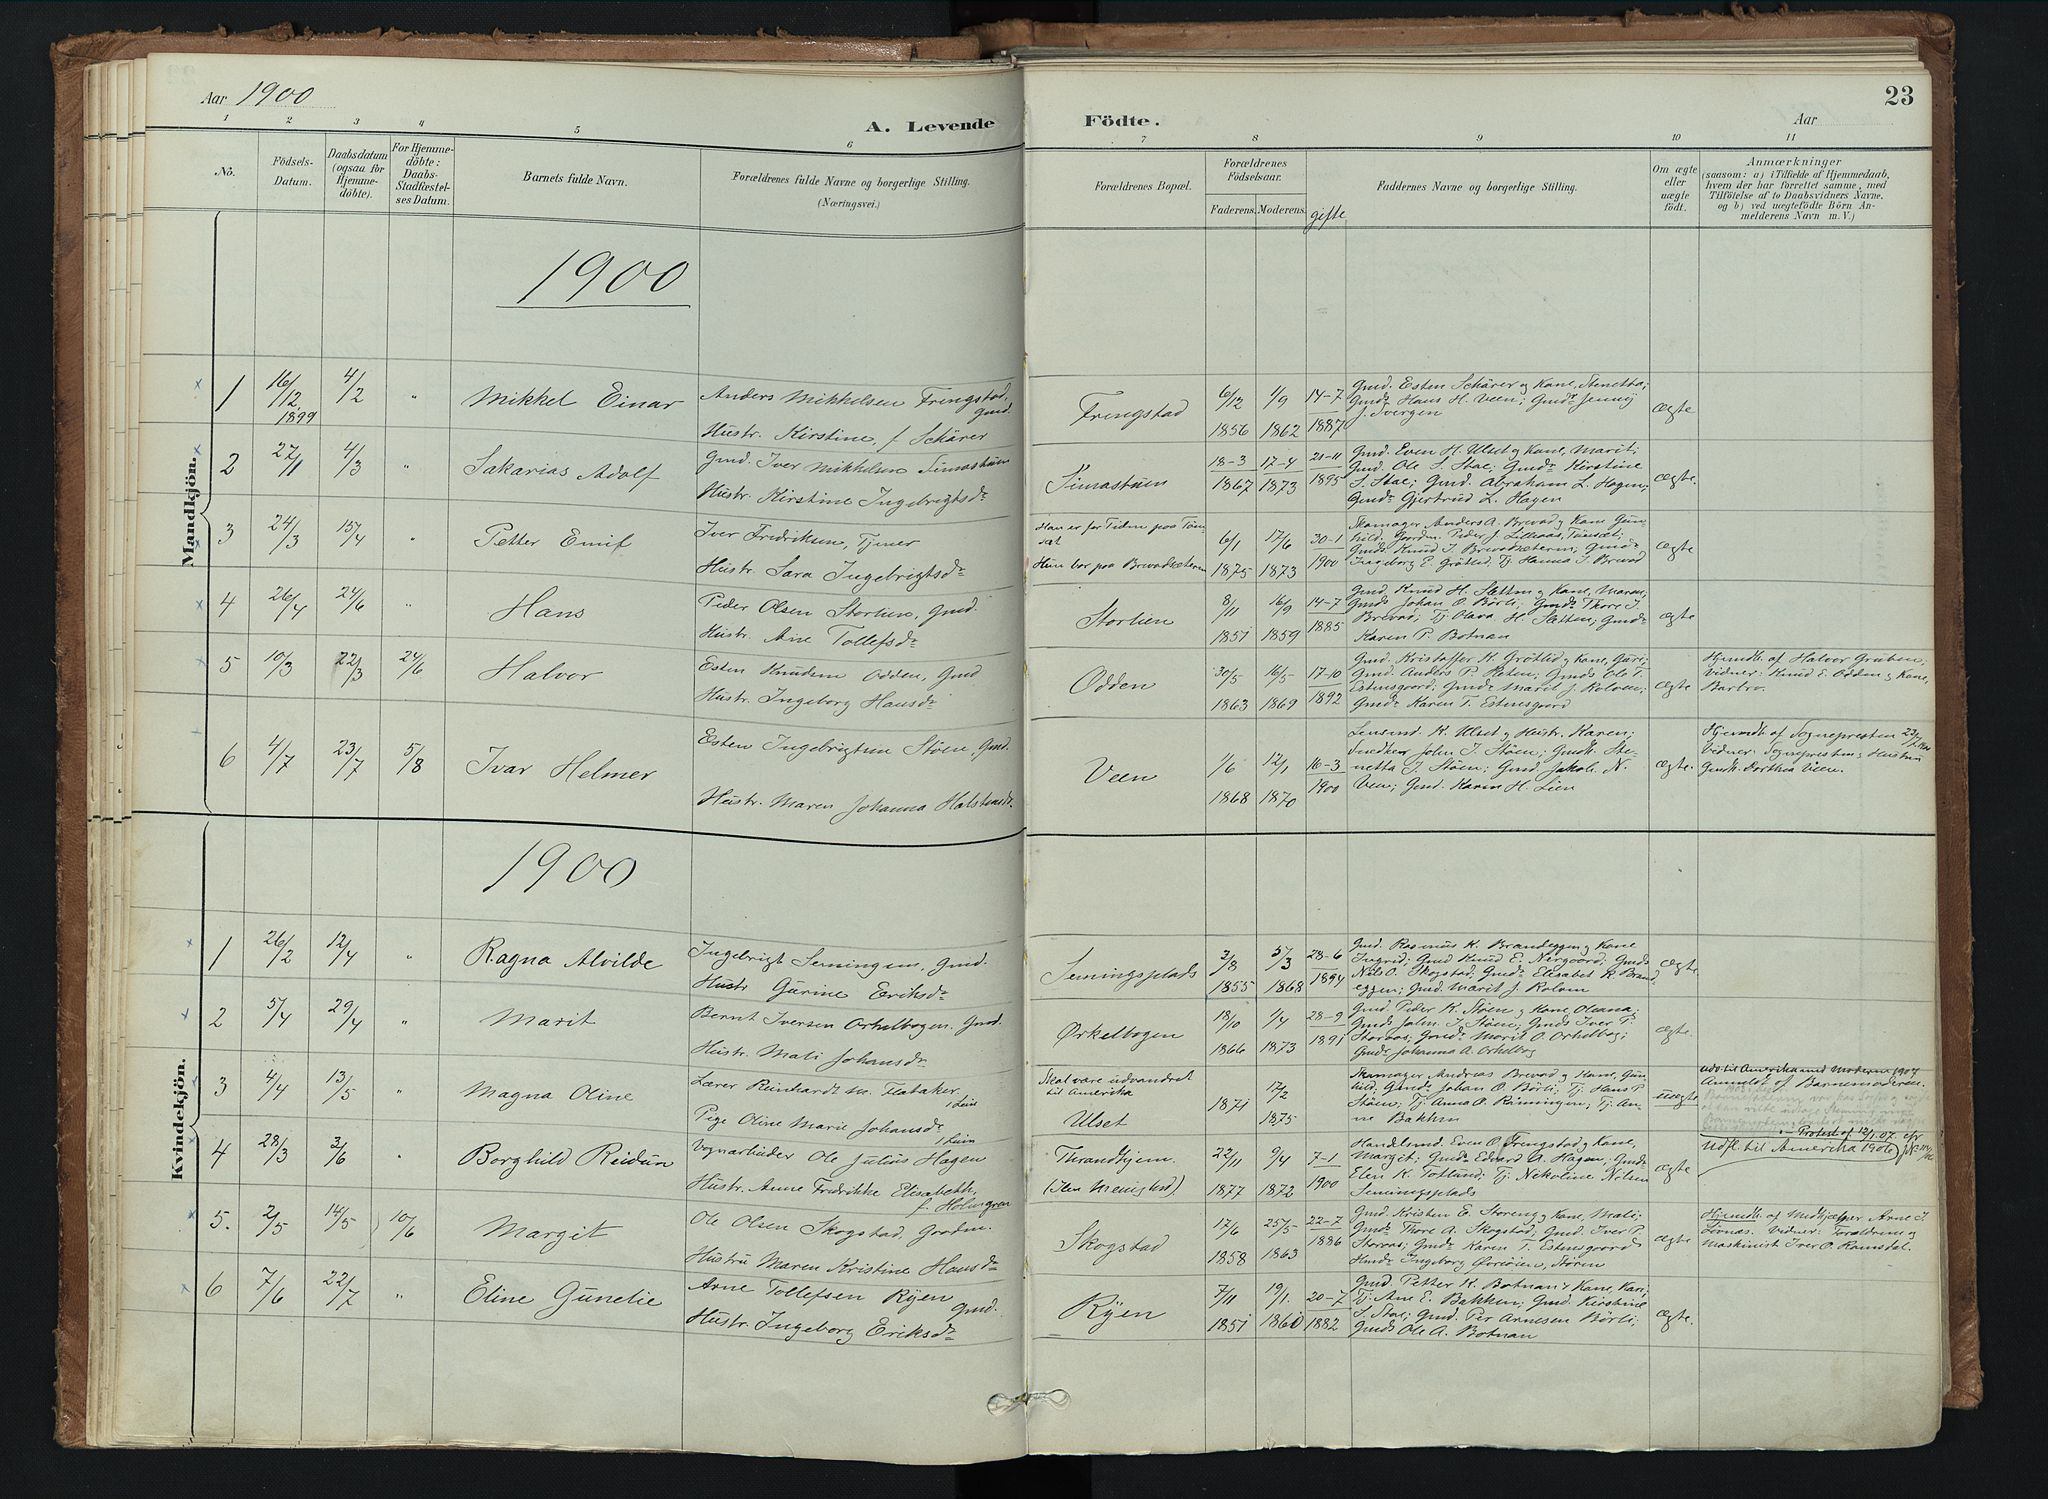 Aar 1900
A. Levende
Födte.
Aar
23
1 2 3 4 5 6 7 8 9 10 11
No.
Födsels-
Datum.
Daabsdatum
(ogsaa for
Hjemme-
döbte).
For Hjemme-
döbte:
Daabs-
Stadfæstel-
ses Datum.
Barnets fulde Navn.
Forældrenes fulde Navne og borgerlige Stilling.
(Næringsvei.)
Forældrenes Bopæl.
Forældrenes
Födselsaar.
Faderens. Moderens.
gifte
Faddernes Navne og borgerlige Stilling.
Om ægte
eller
uægte
födt.
Anmærkninger
(saasom: a) i Tilfælde af Hjemmedaab,
hvem der har forrettet samme, med
Tilföielse af to Daabsvidners Navne,
og b) ved uægtefödte Börn An-
melderens Navn m. V.)
Mandkjön.
1900
1 16/12 1899 4/2 " Mikkel Einar
Anders Mikkelsen Fringstad,
Gmd.
Hustr. Kirstine, f. Schärer
Fringstad
6/12 1856 1/9 1862 14-7 1887
Gmd. Esten Schärer og Kone, Stenetta;
Gmds Hans H. Veen; Gmdr Jenny
J. Ivergen
Ægte
2 27/11 4/3 " Sakarias Adolf
Gmd. Iver Mikkelsen Simastuen
Hustr. Kirstine Ingebrigtsdr
Simastuen
18-3 1867 17-4 1873 21-11 1895
Gmd. Even H. Ulset og Kone, Marit;
Gmd. Ole S. Stae; Gmdr Kirstine
S. Stae; Gmd. Abraham L. Hagen;
Gmdr Gjertrud L. Hagen
Ægte
3 24/3 15/4 " Petter Emif
Iver Fredriksen, Tjener
Hustr. Sara Ingebrigtsdr
Han er for Tiden paa Tön
sæt
Hun bor paa Brevadsæteren
6/1 1875 17/6 1873 30-1 1900
Skomager Anders A. Brevad og Kone Gun
hild. Gaardm. Peder J. Lilleaas, Tönset;
Gmds Knud I. Brevadsæteren; Gmdr
Ingeborg E. Gröttid; Tj. Hanna I. Brevad
Ægte
4 26/4 24/6 " Hans
Peder Olsen Storlien, Gmd.
Hustr. Ane Tollefsdr
Storlien
8/11 1851 16/9 1859 14-7 1885
Gmd. Knud H. Sletten og Kone, Maren;
Gmds Johan O. Börli; Gmds Thore I.
Brevad; Tj. Olava H. Sletten; Gmdr
Karen P. Botnan
Ægte
5 10/3 22/3 24/6 Halvor
Esten Knudsen Odden, Gmd
Hustr. Ingeborg Hansdr
Odden
30/5 1863 16/5 1869 17-10 1892
Gmd. Kristoffer K. Gröttid og Kone, Guri;
Gmd. Anders P. Sleten; Gmds Ole T.
Estensgaard; Gmdr Marit J. Kolven;
Gmdr Karen T. Estensgaard
Ægte
Hjemdt. af Halvor Gruben;
Vidner: Knud E. Odden og Kone,
Barbro.
6 4/7 23/7 5/8 Ivar Helmer
Esten Ingebrigtsen Stöen, Gmd.
Hustr. Maren Johanna Halstensdr.
Veen
1/6 1868 12/1 1870 16-3 1900
Lensmd. K. Ulset og Hustr. Karen;
Snedker John I. Stöen; Gmdk. Ste-
netta I. Stöen; Gmd. Jakob N.
Veen; Gmd. Karen H. Lien
Ægte.
Hjemdt. af Sognepresten 23/7
Vidner: Sognepresten og Hustru
Gmdk. Dorthea Veen.
Kvindekjön.
1900
1 26/2 12/4 " Ragna Alvilde
Ingebrigt Semingsen, Gmd.
Hustr Gurine Eriksdr
Semingsplads
3/8 1855 5/3 1868 28-6 1894
Gmd. Rasmus K. Brandeggen og Kone
Ingrid; Gmd Knud E. Nergaard; Gmds
Nils O. Skogstad; Gmdr Elisabet R. Brand
eggen; Gmd. Marit J. Kolven
Ægte.
2 5/4 29/4 " Marit
Bernt Iversen Orkelbogen, Gmd.
Hustr. Mali Johansdr
Ørkelbogen
18/10 1866 1/4 1873 28-9 1891
Gmd. Peder K. Stöen og Kone, Oleana;
Gmds John I. Stöen; Gmds Iver P.
Storvas; Gmdr Marit O. Orkelbog;
Gmdr Johanna A. Orkelbog
Ægte.
3 4/4 13/5 " Magna Oline
Lærer Reinhardt M. Flataker,
Pige Oline Marie Johansdr
Skal være udvandret
til Amerika
Ulset
1871 17/2 1875
Skomager Andreas Brevad og Kone, Gun
hild. Gmds Johan O. Börli; Tj. Hans P.
Stöen; Tj. Anna O. Rönningen; Tj. An-
ne Bakken
uægte
Udv. til Amerika med Moderen 1904
Anmeldt af Barnemoderen.
Protest af 12/1.07.
4 28/3 3/6 " Borghild Reidun
Vognarbeider Ole Julius Hagen
Hustr. Anne Fredrikke Elisabeth,
f. Holmgren
Thrandhjem.
22/11 1877 9/4 1872 7-1 1900
Handlsmd. Even O. Fringstad og Kone,
Margit; Gmdr Edvard A. Hagen, Gmdr
Elen K. Totlund; Tj. Nekoline Nilsen
Semingsplads
Ægte
Udfl. til Amerika 1906
5. 2/5 14/5 10/6 Margit
Ole Olsen Skogstad, Gaardm.
Hustru Maren Kristine Hansdr
Skogstad
17/6 1858 25/5 1863 22-7 1886
Gmd. Kristen E. Storeng og Kone, Mali;
Gmds Thore A. Skogstad; Gmd. Iver P.
Storvas; Gmdr Karen T. Estensgaard
Ægte
Hjemdt. af Medhjælper Arne I.
Lörnas. Vidner: Foraldrene og
Maskinist Iver O. Ramsdal.
6 7/6 22/7 " Eline Gunelie
Arne Tollefsen Ryen
Gmd.
Hustr. Ingeborg Eriksdr
Ryen
7/11 1851 19/1 1860 20-7 1882
Gmd. Petter K. Botnan og Kone Kari;
Tj. Ane E. Bakken; Gmd. Kirstine
S. Stae; Gmd. Per Arnesen Börli;
Gmds Ole A. Botnan
Ægte.